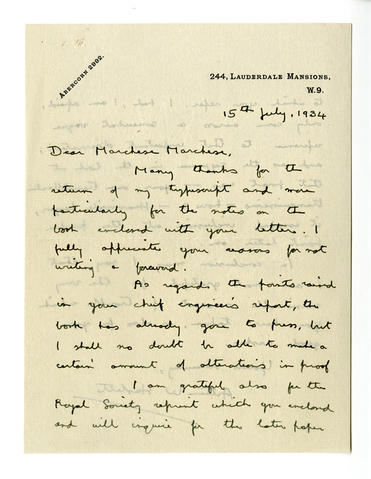 ABERCORN 2902.
244, LAUDERDALE MANSIONS,
W.9.
15th July, 1934
Dear Marchese Marchese,
Many thanks for the
return of my typescript and more
particularly for the notes on the
book enclosed with your letter. I
fully appreciate your reasons for not
writing a foreword.
As regards the points raised
in your chief engineer's report, the
book has already gone to press, but
I shall no doubt be able to make a
certain amount of alterations in proof
I am grateful also for the
Royal Society reprint which you enclosed
and will inquire for the later paper